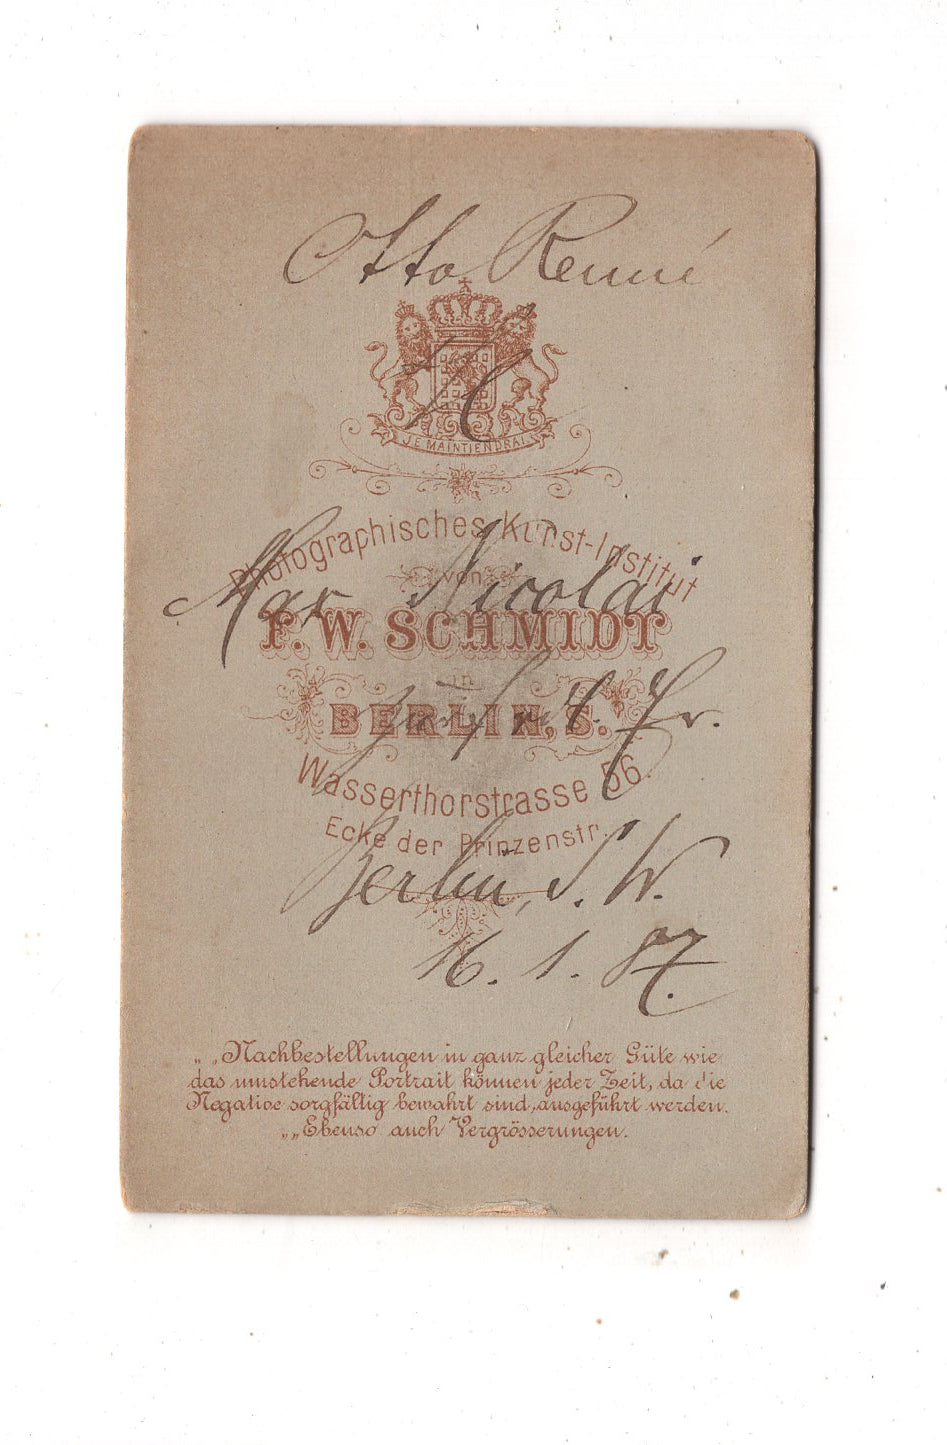 Otto Renné
JE MAINTIENDRAI
Photographisches Kunst-Institut
von
Max Nicolai
F. W. SCHMIDT
in
BERLIN, S.
z. fr. Er.
Wasserthorstrasse 56.
Ecke der Prinzenstr.
Berlin, S. W.
16. 1. 87.
„ „Nachbestellungen in ganz gleicher Güte wie
das umstehende Portrait können jeder Zeit, da die
Negative sorgfältig bewahrt sind, ausgeführt werden.
„ „Ebenso auch Vergrösserungen.